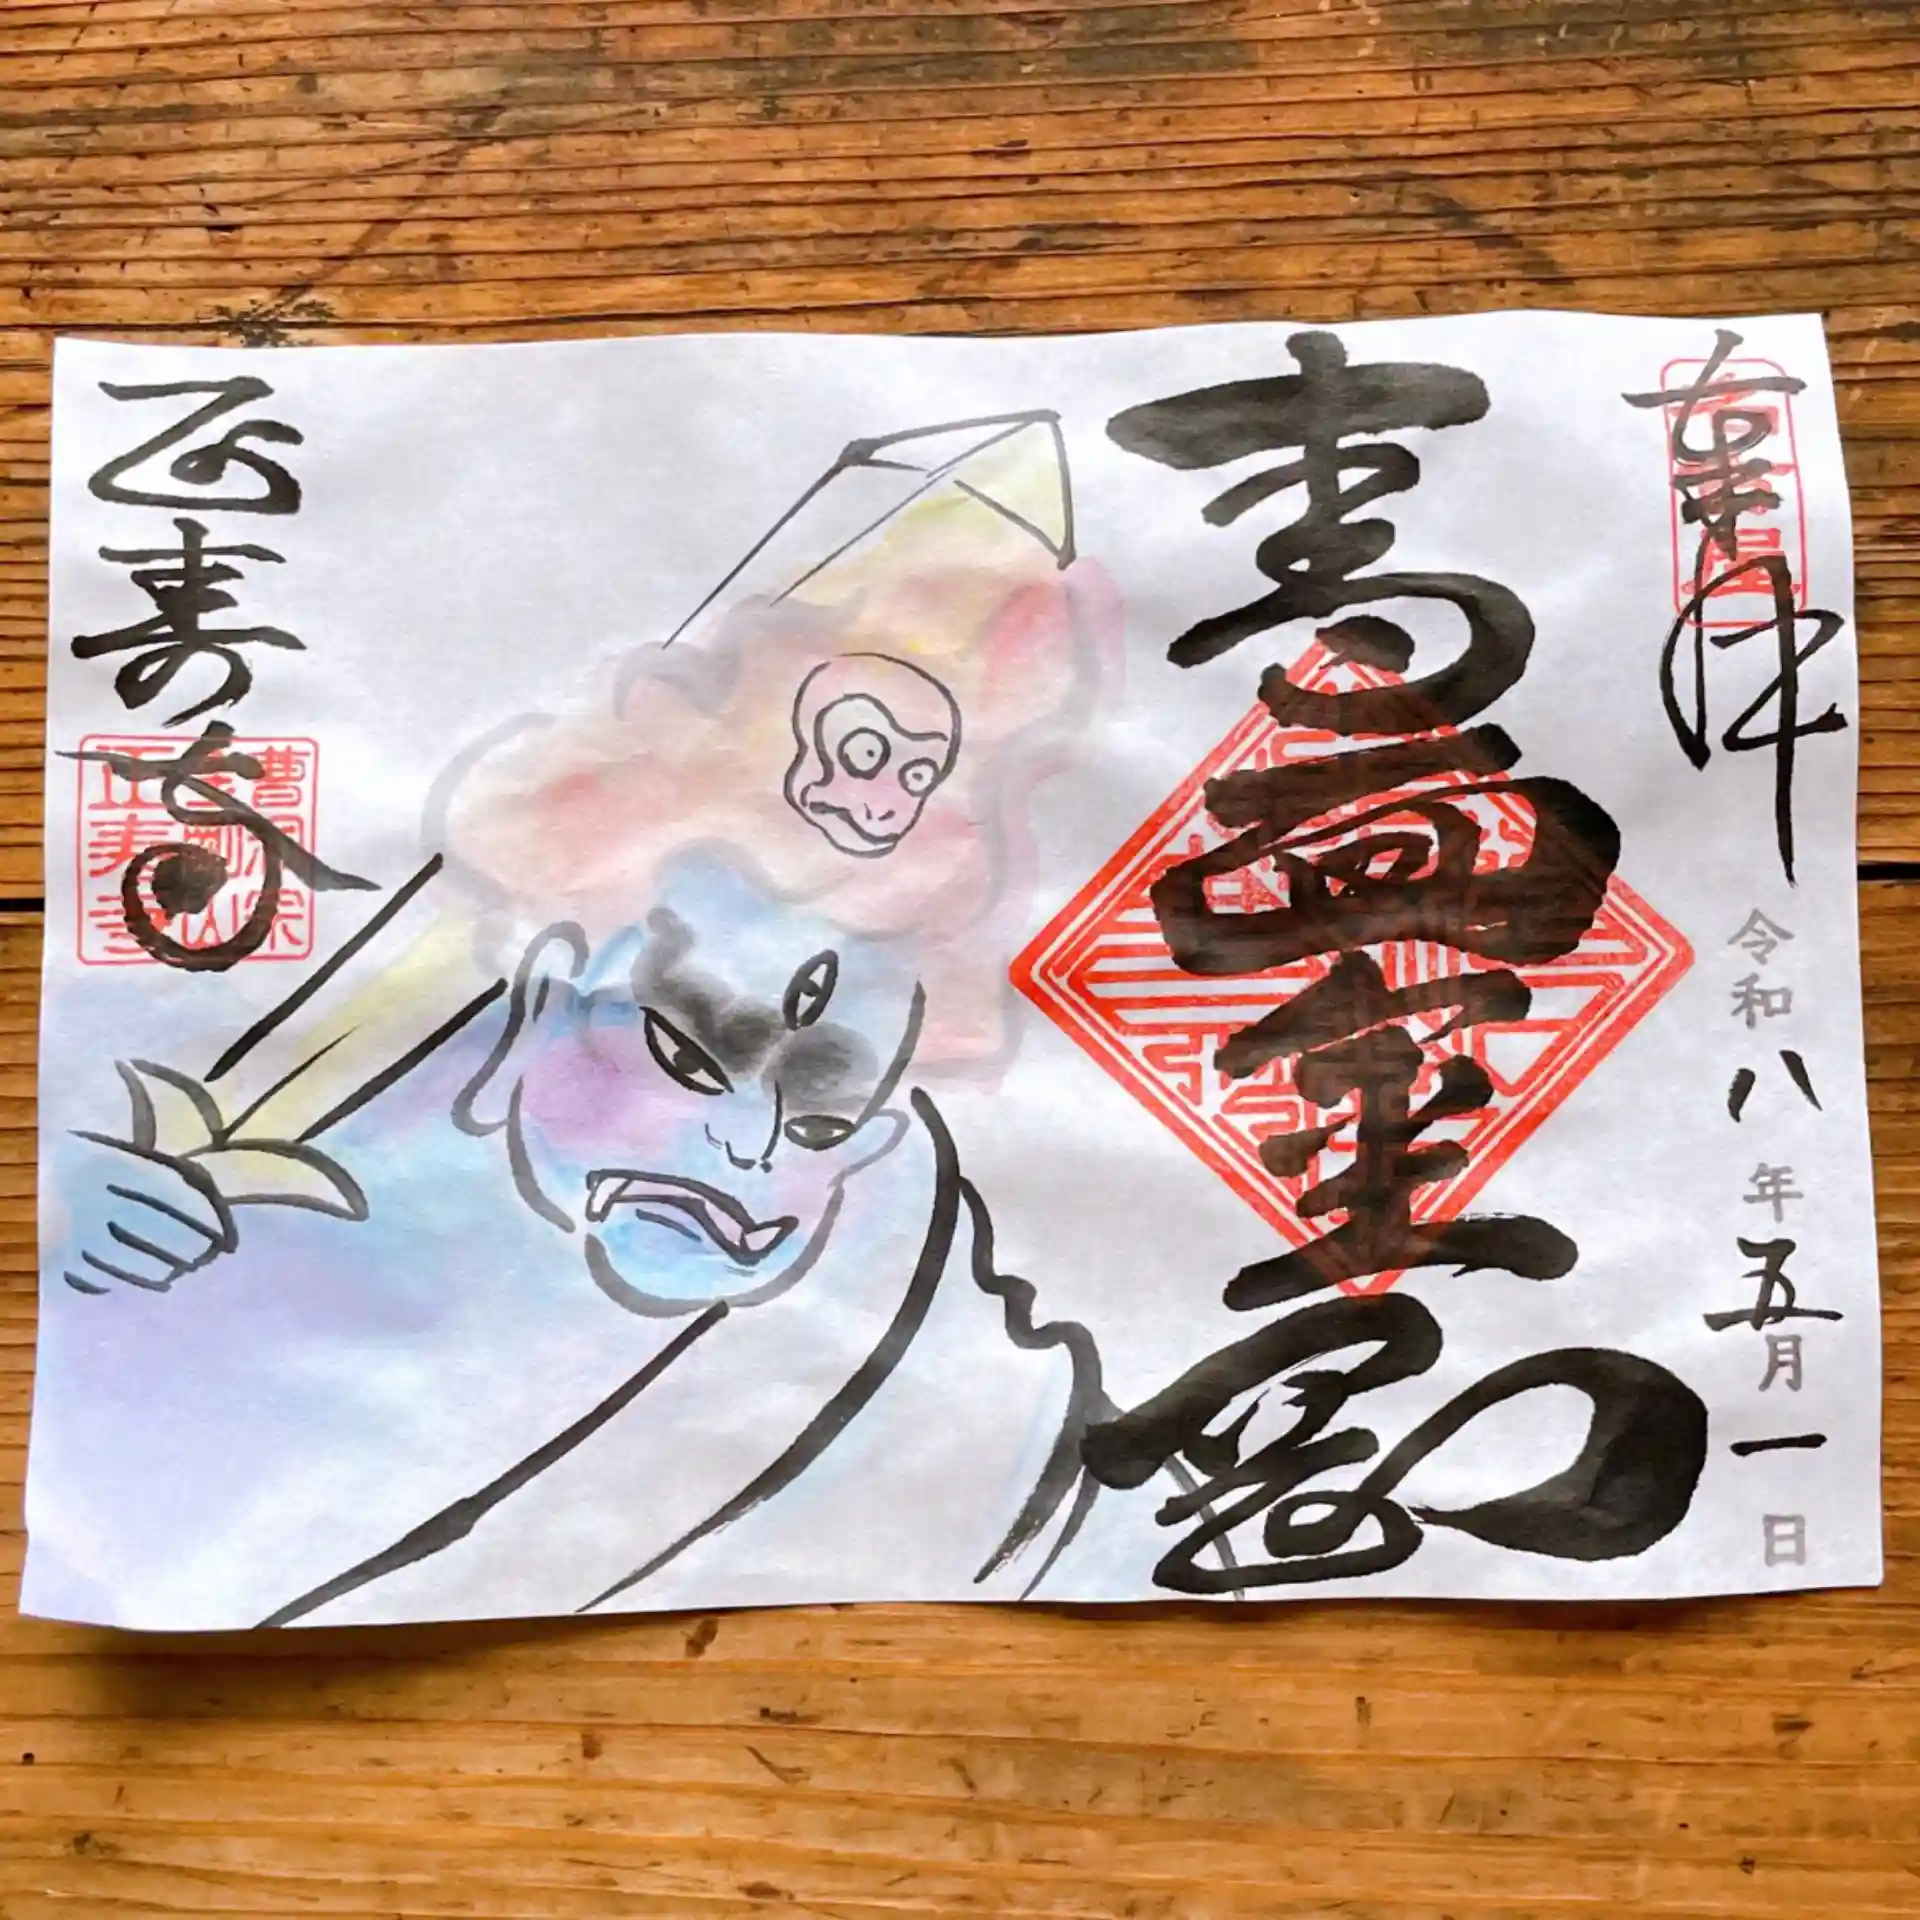 奉拝
令和八年五月一日
青面金剛
正寿寺
曹洞宗
金剛山
正寿寺